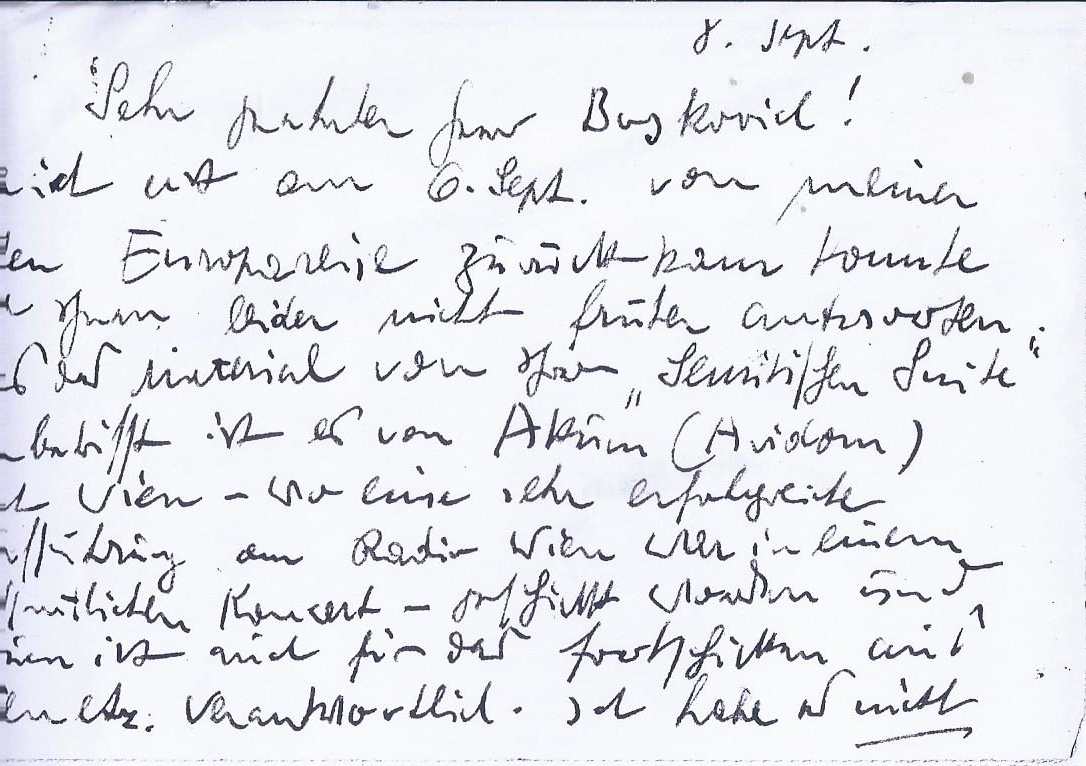 8. Sept.
Sehr geehrter Herr Boskovich!
ich erst am 6. Sept. von meiner
Europareise zurückkam konnte
Ihnen leider nicht früher antworten.
das Material von Ihrer „Semitischen Suite"
betrifft ist es von Akum (Avidom)
Wien – wo eine sehr erfolgreiche
am Radio Wien war in einem
Konzert – geschickt worden und
ist auch für das fortschicken
etz. verantwortlich. Ich habe es nicht